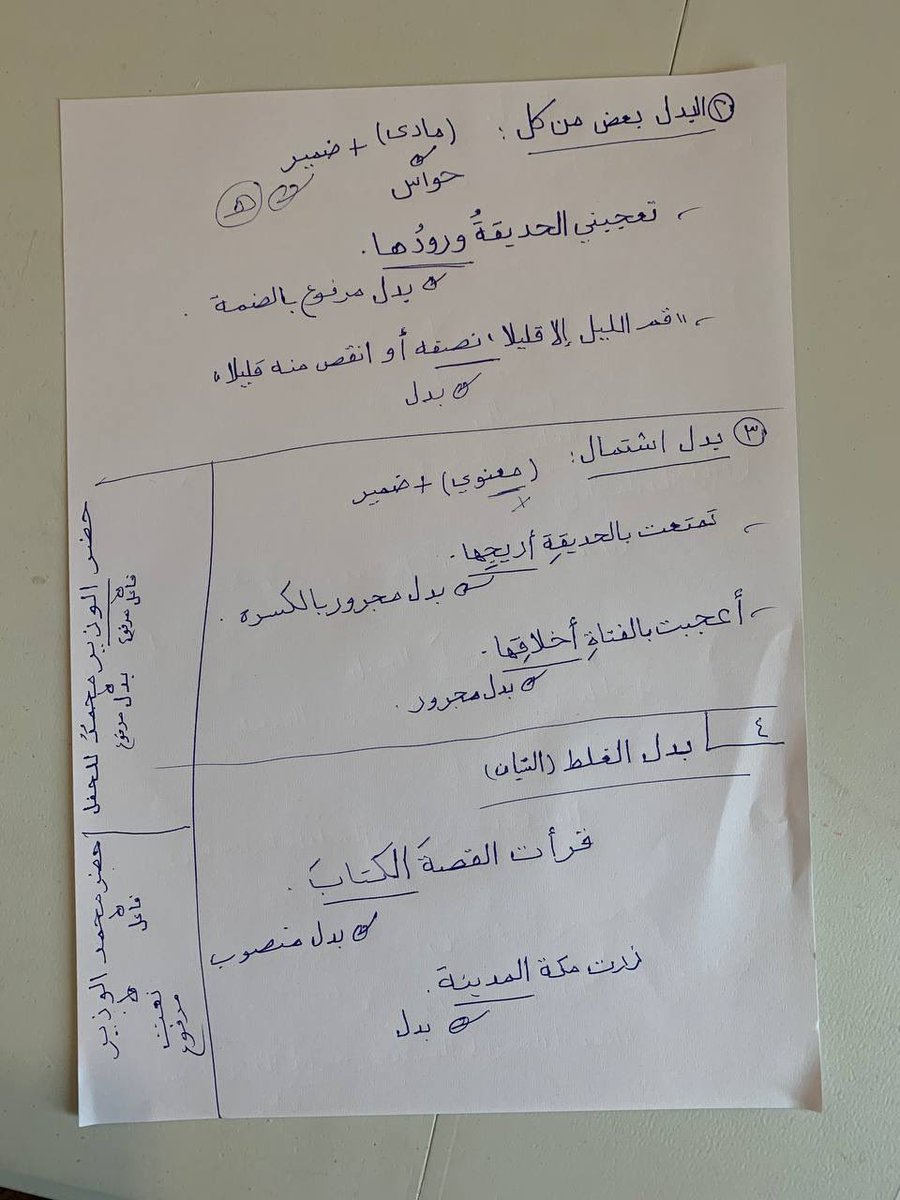 ② البدل بعض من كل : (مادى) + ضمير
حواس
ها
تعجبني الحديقةُ ورودُها .
بدل مرفوع بالضمة .
"قم الليل إلا قليلا ، نصفه أو انقص منه قليلا"
بدل
③ بدل اشتمال : (معنوي) + ضمير
تمتعت بالحديقةِ أريجِها .
بدل مجرور بالكسره .
أعجبت بالفتاةِ أخلاقِها .
بدل مجرور .
٤ بدل الغلط (النسيان)
قرأت القصةَ الكتابَ .
بدل منصوب
زرت مكة المدينةَ .
بدل
حضر الوزير محمدٌ للحفل
فاعل مرفوع
بدل مرفوع
حضر محمد الوزير
فاعل
نعت
مرفوع